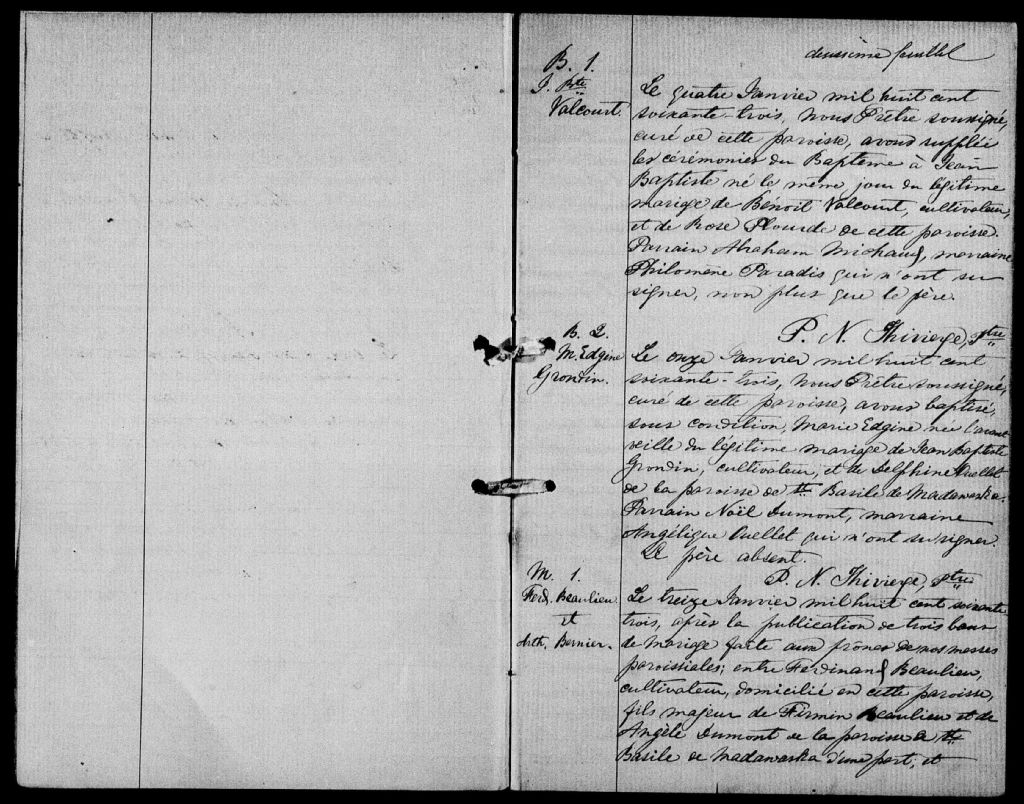 deuxième feuillet
B. 1.
J. Bte
Valcourt.
Le quatre Janvier mil huit cent
soixante-trois, nous Prêtre soussigné,
curé de cette paroisse, avons suppléé
les cérémonies du Baptême à Jean
Baptiste né le même jour du légitime
mariage de Bénoit Valcourt, cultivateur,
et de Rose Plourde de cette paroisse.
Parrain Abraham Michaud, marraine
Philomène Paradis qui n'ont su
signer, non plus que le père.
P. N. Thivierge, Ptre
B. 2.
M. Edgine
Grondin.
Le onze Janvier mil huit cent
soixante-trois, nous Prêtre soussigné,
curé de cette paroisse, avons baptisé,
sous condition, Marie Edgine née l'avant
veille du légitime mariage de Jean Baptiste
Grondin, cultivateur, et de Delphine Ouellet
de la paroisse de St. Basile de Madawaska.
Parrain Noël Dumont, marraine
Angélique Ouellet qui n'ont su signer.
Le père absent.
P. N. Thivierge, Ptre
M. 1.
Ferd. Beaulieu
et
Arth. Bernier.
Le treize Janvier mil huit cent soixante
trois, après la publication de trois bans
de mariage faite aux prônes de nos messes
paroissiales; entre Ferdinand Beaulieu,
cultivateur, domicilié en cette paroisse,
fils majeur de Firmin Beaulieu et de
Angèle Dumont de la paroisse de St.
Basile de Madawaska d'une part; et